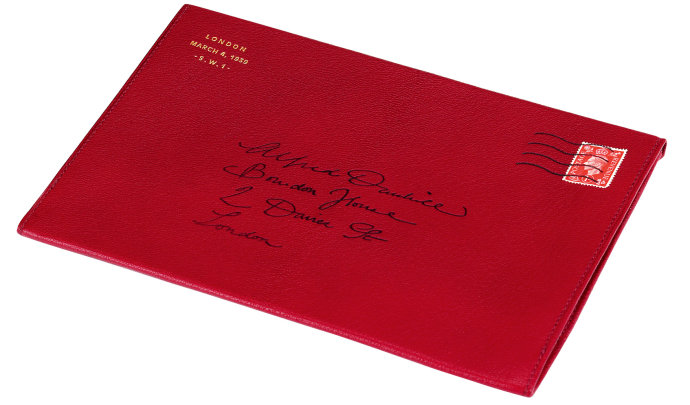 LONDON
MARCH 4, 1939
- S.W.1 -
Alfred Dunhill
Bourdon House
2 Davies St
London